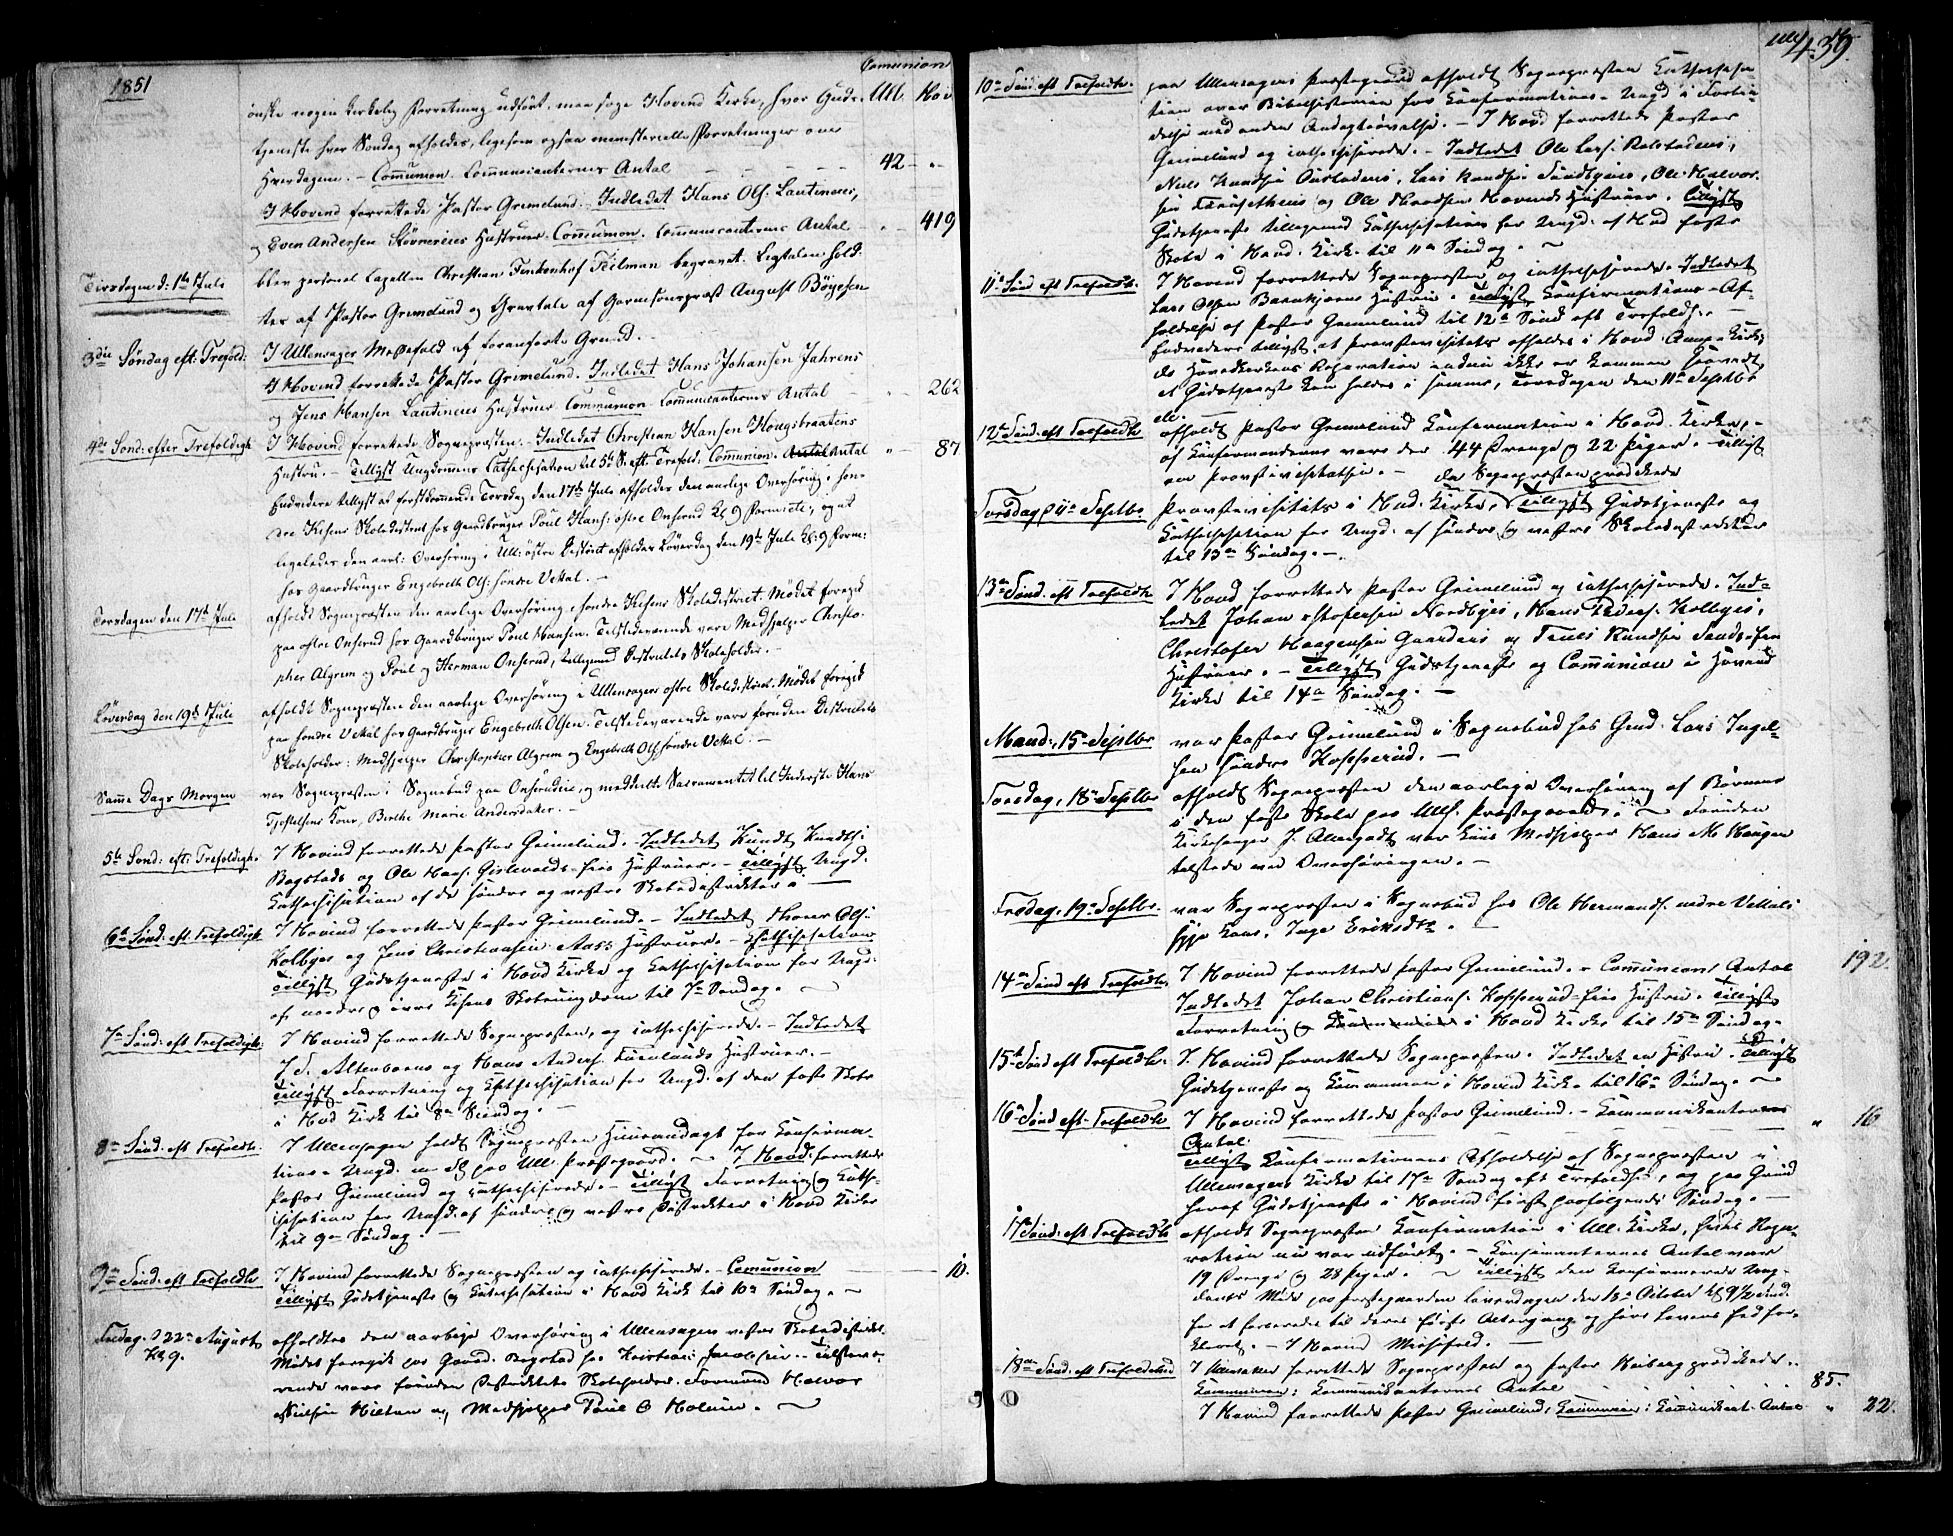 1851
Comunion
Ull. Hov.
ønske nogen kirkelig Forretning udført, maa søge Hovind Kirke, hvor Guds-
tjeneste hver Søndag afholdes, ligesom ogsaa ministerielle Forretninger om
Hverdagene. - Communion. Communicanternes Antal 42 - "
I Hovind forrettede Pastor Grimelund. Indledet Hans Ols. Lautineies,
og Even Andersen Hustruer. Communion. Communicanternes Antal - " - 419
Tirsdagen d: 1ste Juli blev personel Capellan Christian Finkenhof Teilman begravet. Ligtalen hold-
tes af Pastor Grimelund og Gravtale af Garnisonspræst August Böyesen
3die Söndag eft: Trefold: I Ullensager Messefald af foranførte Grund. -
I Hovind forrettede Pastor Grimelund. Indledet Hans Johansen Jahrens
og Jens Hansen Lautineies Hustruer. Communion Communicanternes Antal - " - 262
4de Sönd: efter Trefoldigh: I Hovind forrettede Sognepræsten. - Indledet Christian Hansen Hougsbraatens
Hustru. - Tillyst Ungdommens Cathechisation til 5te S. eft. Trefold: Comunion. Antal " - 87
Endvidere tillyst at førstkommende Torsdag den 17de Juli afholdes den aarlige Overhøring i søn-
dre Kisens Skoledistrict hos Gaardbruger Poul Hans: østre Onsrud Kl 9 Formidd:, og at
ligeledes den aarl: Overhøring i Ull: østre District afholdes Löverdag den 19de Juli Kl: 9 Form:
hos Gaardbruger Engebreth Ols: søndre Vekal. -
Torsdagen den 17de Juli afholdt Sognepræsten den aarlige Overhøring i søndre Kisens Skoledistrict. Mødet foregik
paa østre Onsrud hos Gaardbruger Poul Hansen. Tilstedeværende vare Medhjælper Christo-
pher Algrim og Poul og Herman Onsrud, tilligemed Districtets Skoleholder. -
Löverdag den 19de Juli afholdt Sognepræsten den aarlige Overhøring i Ullensagers østre Skoledistrict. Mødet foregik
paa søndre Vekal hos Gaardbruger Engebreth Olsen. Tilstedeværende vare foruden Districtets
Skoleholder: Medhjælper Christopher Algrim og Engebreth Ols. søndre Vekal. -
Samme Dags Morgen var Sognepræsten i Sognebud paa Onsrudeie, og meddelte Sacramentet til Inderste Hans
Tjostelsens Kone, Berthe Marie Andersdatter. -
5te Sönd: eft: Trefoldigh. I Hovind forrettede Pastor Grimelund. - Indledet Knudt Knudts:
Bogstads og Ole Hans. Gislevolds-eies Hustruer. - Tillyst Ungd.
Kathechisation af de søndre og vestre Skoledistrikter. -
6te Sönd. eft. Trefoldigh. I Hovind forrettede Pastor Grimelund. - Indledet Ols:
Holbyes og Jens Christiansen Aass Hustruer. - Khathechisation
Tillyst Gudstjeneste i Hovd Kirke og Kathechisation for Ungd:
af nordre og øvre Kisens Skoleungdom til 7de Søndag. -
7de Sönd. eft Trefoldigh: I Hovind forrettede Sognepræsten, og cathechiserede. - Indledet
J. S. Altenborns og Hans Anders. Hustruer. -
Tillyst Forretning og Khathechisation for Ungd. af den faste Skole
i Hovd Kirke til 8de Søndag. -
8de Sönd. eft. Trefoldh: I Ullensager holdt Sognepræsten Huusandagt for Konfirma-
tions-Ungd. paa Ull. Præstegaard. - I Hovd: forrettede
Pastor Grimelund og cathechiserede. - Tillyst Forretning og Kathe-
chisation for Ungd. af søndre og vestre Distrikter i Hovd Kirke
til 9de Søndag. -
9de Sönd. eft Trefoldh I Hovind forrettede Sognepræsten og cathechiserede. - Communion 10.
Tillyst Gudstjeneste og Katechisation i Hovd Kirk til 10de Søndag. -
Fredag d 22de August Kl 9. afholdtes den aarlige Overhøring i Ullensagers vestre Skoledistrikt.
Mødet foregik paa Gaard. Bogstad hos Kristian Jacobsen. - Tilstevæ-
rende vare foruden Distriktets Skoleholder. Formand Halvor
Nielsen Hilton og Medhjelper Poul O Holum. -
439
10de Sönd. eft Trefoldh. paa Ullensagers Præstegaard afholdt Sognepræsten Kathechisa-
tion over Bibelhistorien for Konfirmations-Ungd i Forbin-
delse med anden Andagtsøvelse. - I Hovd. forrettede Pastor
Grimelund og cathechiserede. - Indledet Ole Lars.
Niels Knudsen Lars Knudsen Ole Halvor-
sen og Ole Hovinds Hustruer. Tillyst
Gudstjeneste tilligemed Kathechisation for Ungd. af Hovd faste
Skole i Hovd. Kirk. til 11te Søndag. -
11te Sönd eft Trefoldh. I Hovind forrettede Sognepræsten og cathechiserede. Indledet
Lars Olsen Hustru. Tillyst Konfirmations-Af-
holdelse af Pastor Grimelund til 12te Sönd eft Trefoldh. -
Endvidere tillyst, at Provstevisitats afholdes i Hovd Annex-Kirke,
da Hovedkirkens Reparation endnu ikke er kommen saavidt
at Gudstjeneste kan holdes i samme, Torsdagen den 11te Septbr
12te Sönd. eft Trefoldh afholdt Pastor Grimelund Konfirmation i Hovd. Kirke, -
af Konfirmanderne vare der 44 Drenge og 22 Piger. - Tillyst
om Provstevisitatsen. - da Sognepræsten prædikede
Torsdag d 11te Septbr. Provstevisitats i Hovd. Kirke, Tillyst Gudstjeneste og
Kathechisation for Ungd. af søndre og vestre Skoledistrikter
til 13de Søndag. -
13de Sönd. eft Trefoldh I Hovd forrettede Pastor Grimelund og cathechiserede. Ind-
ledet Johan Nordbyes, Hans Peders. Holbyes,
Christofer Haagensen Gaarders og Knudsen
Hustruer. - Tillyst Gudstjeneste og Communion i Hovind
Kirke til 14de Søndag. -
Mand. 15de Septbr var Pastor Grimelund i Sognebud hos Gmd. Lars Ingel-
sen søndre Kopperud. -
Torsdag, 18de Septbr afholdt Sognepræsten den aarlige Overhøring af Børnene
i den faste Skole paa Ulls. Præstegaard. - Foruden
Kirkesanger J. var kuns Medhjelper Hans M Haugen
tilstede ved Overhøringen. -
Fredag, 19de Septbr. var Sognepræsten i Sognebud hos Ole Hermands. nedre
syge Kone, Inge Eriksdtr. -
14de Sönd eft Trefoldh. I Hovind forrettede Pastor Grimelund. - Communion, Antal 192.
Indledet Johan Christians. Kopperud-eies Hustru. Tillyst
Forretning og Kommunion i Hovd Kirke til 15de Søndag.
15de Sönd eft Trefoldh. I. Hovind forrettede Sognepræsten. Indledet en Hustru. Tillyst
Gudstjeneste og Kommunion i Hovind Kirke til 16de Søndag. -
16de Sönd eft. Trefoldh I Hovind forrettede Pastor Grimelund. - Kommunikanternes
Antal " 16
Tillyst Konfirmationens Afholdelse af Sognepræsten i
Ullensagers Kirke til 17de Søndag eft Trefoldh., og paa Grund
heraf Gudstjeneste i Hovind først paafølgende Søndag. -
17de Sönd. eft Trefoldh afholdt Sognepræsten Konfirmation i Ull. Kirke, hvis Repa-
ration nu var udført. - Konfirmanternes Antal vare
19 Drenge og 28 Piger. - Tillyst den konfirmerede Ung-
doms Møde paa Præstegaarden Løverdagen den 18de October Kl 9 1/2
for at forberedes til deres første Altergang
- I Hovind Missefald. -
18de Sönd. eft Trefoldighed I Ullensaker forrettede Sognepræsten og Pastor prædikede.
Kommunion: Kommunikanternes Antal 85.
I Hovind forrettede Pastor Grimelund, Kommunion: Kommunikant. Antal " 22.